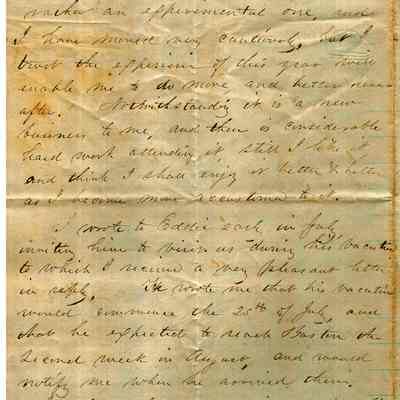 rather an experimental one, and
I have moved very cautiously, but I
trust the experience of this year will
enable me to do more and better
after. Notwithstanding it is a new
business to me, and there is considerable
hard work attending it, still I like it
and think I shall enjoy it better & better
as I become more accustomed to it.
I wrote to Eddie early in July,
inviting him to visit us during his vacation
to which I received a very pleasant letter
in reply. He wrote me that his vacation
would commence the 25th of July, and
that he expected to reach Boston the
second week in August, and would
notify me when he arrived there.